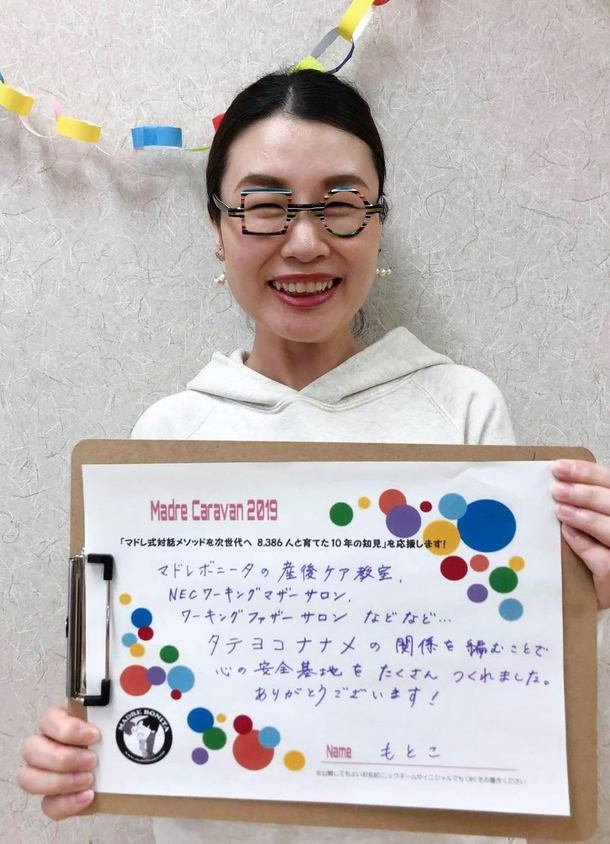 Madre Caravan 2019
「マドレ式対話メソッドを次世代へ 8,386人と育てた10年の知見」を応援します!
マドレボニータの産後ケア教室、
NECワーキングマザーサロン、
ワーキングファザーサロン などなど…
タテヨコナナメの関係を編むことで
心の安全基地をたくさん つくれました。
ありがとうございます!
MADRE BONITA
Name もとこ
※公開してもよいお名前(ニックネームやイニシャルでもOK)をお書きください